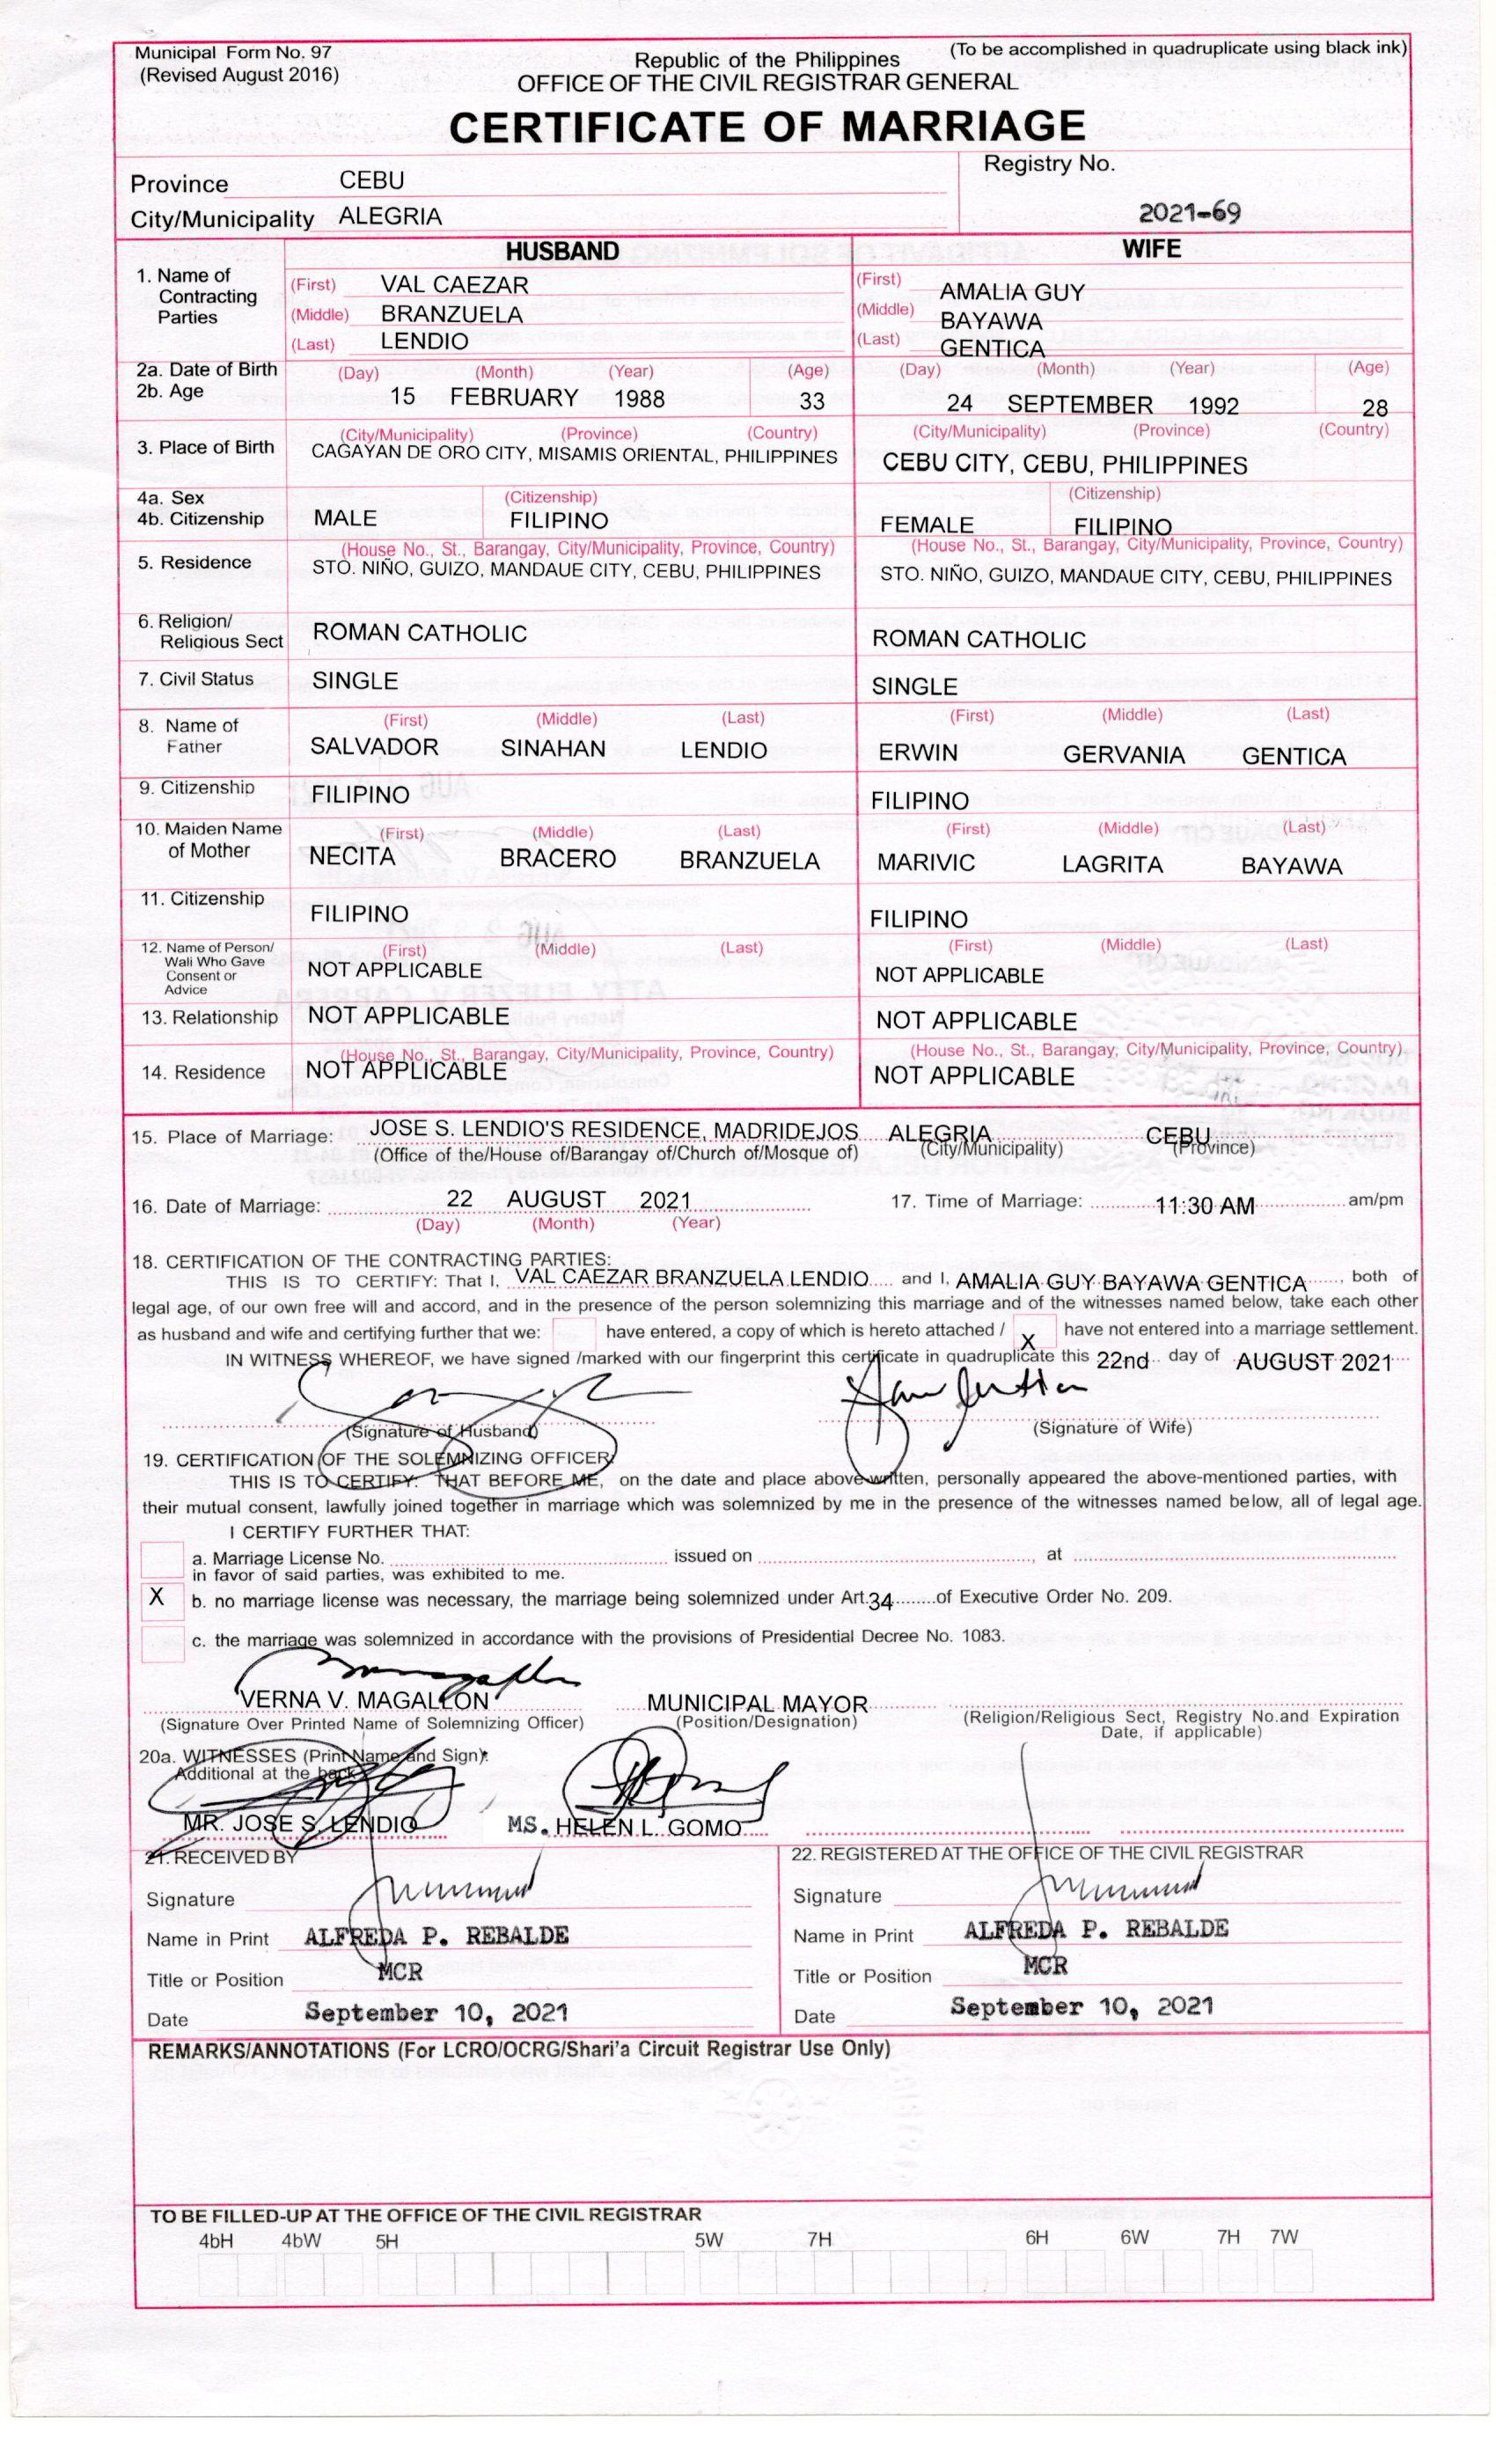 Municipal Form No. 97
(Revised August 2016)
Republic of the Philippines
(To be accomplished in quadruplicate using black ink)
OFFICE OF THE CIVIL REGISTRAR GENERAL
CERTIFICATE OF MARRIAGE
Province CEBU
City/Municipality ALEGRIA
Registry No.
2021-69
HUSBAND WIFE
1. Name of Contracting Parties
(First) VAL CAEZAR (First) AMALIA GUY
(Middle) BRANZUELA (Middle) BAYAWA
(Last) LENDIO (Last) GENTICA
2a. Date of Birth (Day) (Month) (Year) (Age) (Day) (Month) (Year) (Age)
2b. Age 15 FEBRUARY 1988 33 24 SEPTEMBER 1992 28
3. Place of Birth (City/Municipality) (Province) (Country) (City/Municipality) (Province) (Country)
CAGAYAN DE ORO CITY, MISAMIS ORIENTAL, PHILIPPINES CEBU CITY, CEBU, PHILIPPINES
4a. Sex (Citizenship) (Citizenship)
4b. Citizenship MALE FILIPINO FEMALE FILIPINO
5. Residence (House No., St., Barangay, City/Municipality, Province, Country) (House No., St., Barangay, City/Municipality, Province, Country)
STO. NIÑO, GUIZO, MANDAUE CITY, CEBU, PHILIPPINES STO. NIÑO, GUIZO, MANDAUE CITY, CEBU, PHILIPPINES
6. Religion/ Religious Sect ROMAN CATHOLIC ROMAN CATHOLIC
7. Civil Status SINGLE SINGLE
8. Name of Father (First) (Middle) (Last) (First) (Middle) (Last)
SALVADOR SINAHAN LENDIO ERWIN GERVANIA GENTICA
9. Citizenship FILIPINO FILIPINO
10. Maiden Name of Mother (First) (Middle) (Last) (First) (Middle) (Last)
NECITA BRACERO BRANZUELA MARIVIC LAGRITA BAYAWA
11. Citizenship FILIPINO FILIPINO
12. Name of Person/ Wali Who Gave Consent or Advice (First) (Middle) (Last) (First) (Middle) (Last)
NOT APPLICABLE NOT APPLICABLE
13. Relationship NOT APPLICABLE NOT APPLICABLE
14. Residence (House No., St., Barangay, City/Municipality, Province, Country) (House No., St., Barangay, City/Municipality, Province, Country)
NOT APPLICABLE NOT APPLICABLE
15. Place of Marriage: JOSE S. LENDIO'S RESIDENCE, MADRIDEJOS ALEGRIA CEBU
(Office of the/House of/Barangay of/Church of/Mosque of) (City/Municipality) (Province)
16. Date of Marriage: 22 AUGUST 2021 17. Time of Marriage: 11:30 AM am/pm
(Day) (Month) (Year)
18. CERTIFICATION OF THE CONTRACTING PARTIES:
THIS IS TO CERTIFY: That I, VAL CAEZAR BRANZUELA LENDIO and I, AMALIA GUY BAYAWA GENTICA, both of
legal age, of our own free will and accord, and in the presence of the person solemnizing this marriage and of the witnesses named below, take each other
as husband and wife and certifying further that we: have entered, a copy of which is hereto attached / X have not entered into a marriage settlement.
IN WITNESS WHEREOF, we have signed /marked with our fingerprint this certificate in quadruplicate this 22nd day of AUGUST 2021
(Signature of Husband) (Signature of Wife)
19. CERTIFICATION OF THE SOLEMNIZING OFFICER:
THIS IS TO CERTIFY: THAT BEFORE ME, on the date and place above-written, personally appeared the above-mentioned parties, with
their mutual consent, lawfully joined together in marriage which was solemnized by me in the presence of the witnesses named below, all of legal age.
I CERTIFY FURTHER THAT:
a. Marriage License No. issued on , at
in favor of said parties, was exhibited to me.
X b. no marriage license was necessary, the marriage being solemnized under Art.34 of Executive Order No. 209.
c. the marriage was solemnized in accordance with the provisions of Presidential Decree No. 1083.
VERNA V. MAGALLON MUNICIPAL MAYOR
(Signature Over Printed Name of Solemnizing Officer) (Position/Designation) (Religion/Religious Sect, Registry No.and Expiration
Date, if applicable)
20a. WITNESSES (Print Name and Sign):
Additional at the back
MR. JOSE S. LENDIO MS. HELEN L. GOMO
21. RECEIVED BY 22. REGISTERED AT THE OFFICE OF THE CIVIL REGISTRAR
Signature Signature
Name in Print ALFREDA P. REBALDE Name in Print ALFREDA P. REBALDE
Title or Position MCR Title or Position MCR
Date September 10, 2021 Date September 10, 2021
REMARKS/ANNOTATIONS (For LCRO/OCRG/Shari'a Circuit Registrar Use Only)
TO BE FILLED-UP AT THE OFFICE OF THE CIVIL REGISTRAR
4bH 4bW 5H 5W 7H 6H 6W 7H 7W